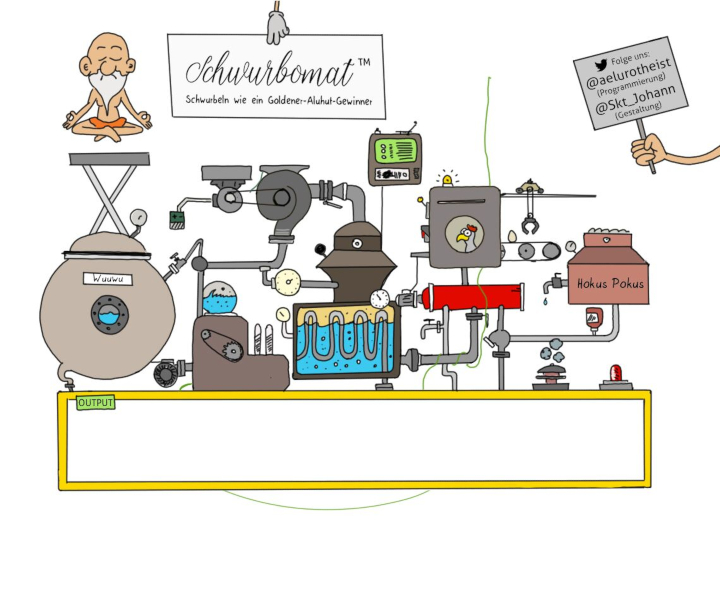 Schwurbomat™
Schwurbeln wie ein Goldener-Aluhut-Gewinner
Folge uns:
@aelurotheist
(Programmierung)
@Skt_Johann
(Gestaltung)
Wuuwu
Hokus Pokus
OUTPUT